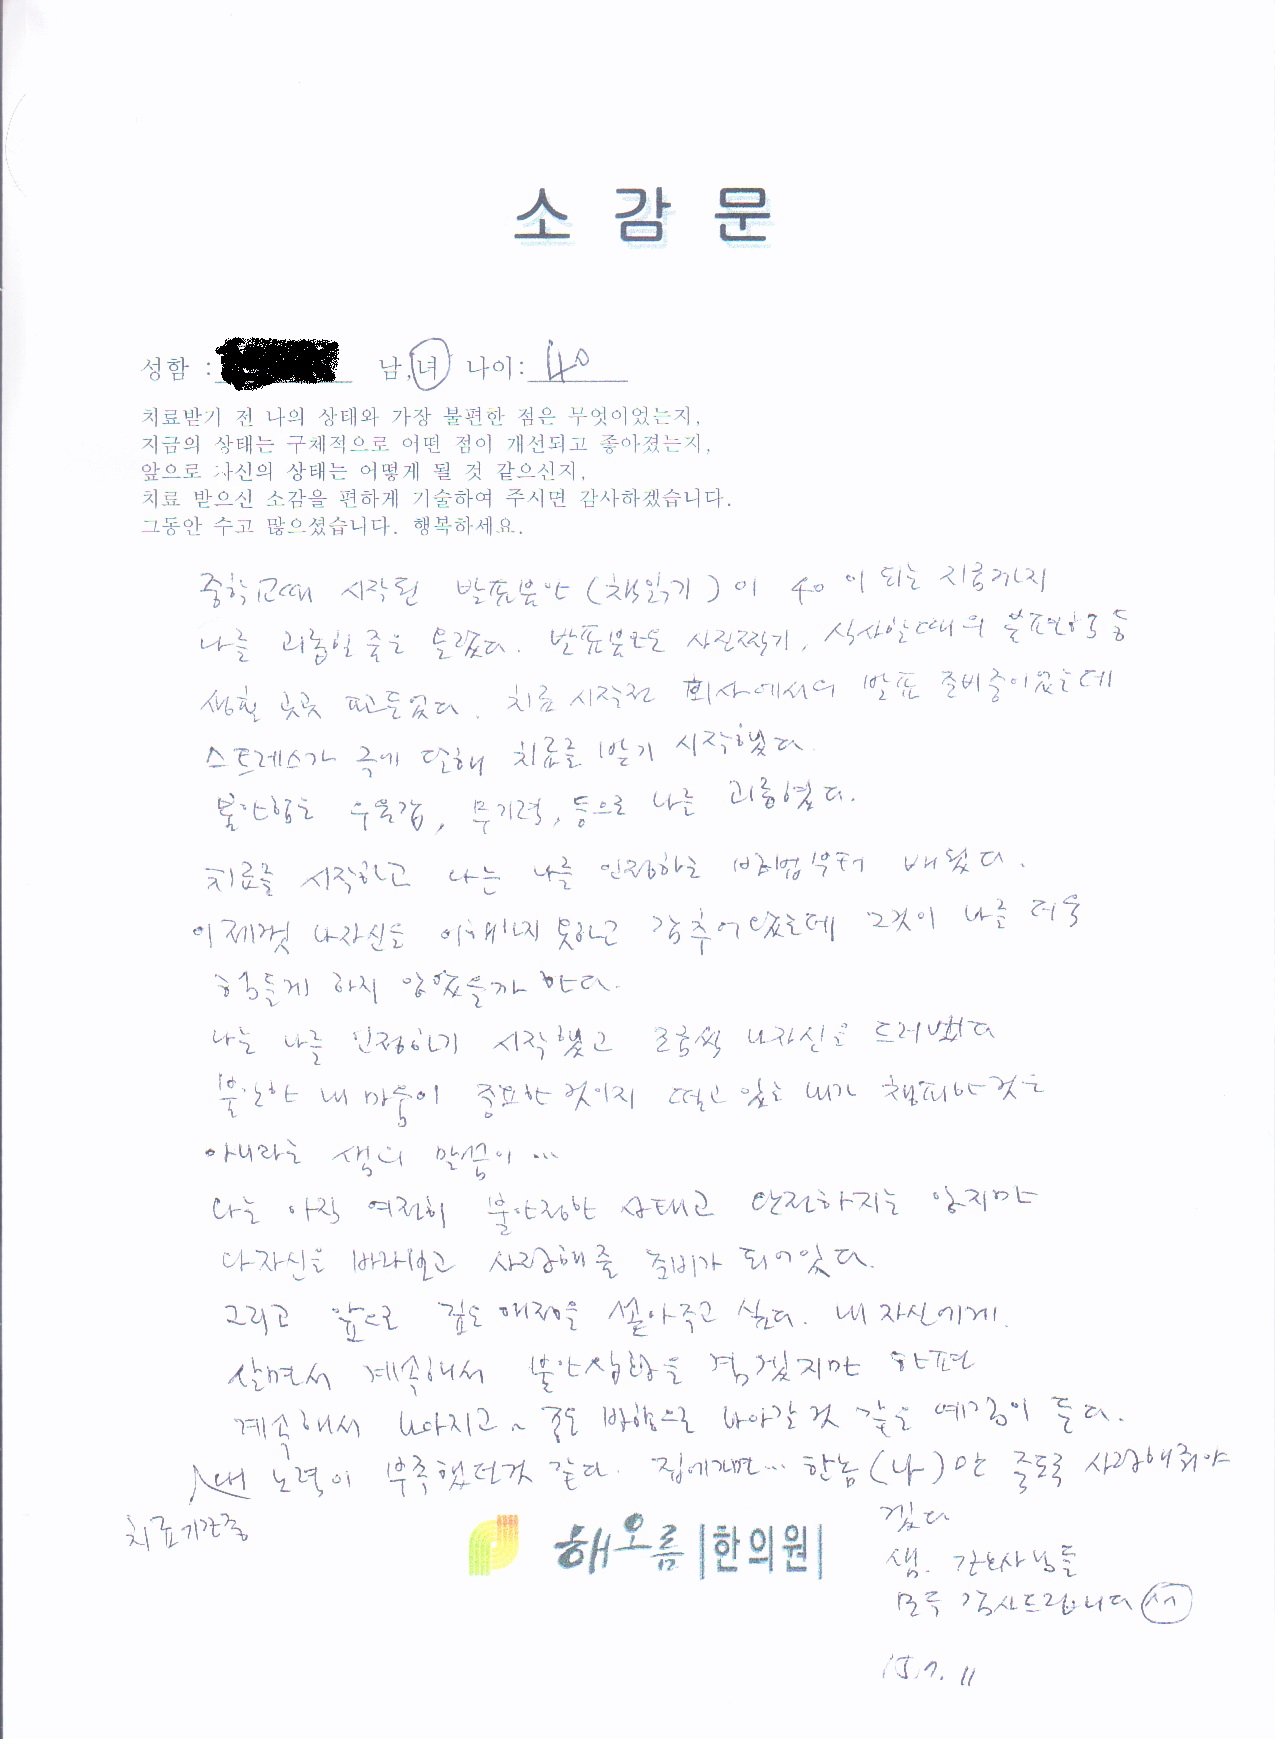 소 감 문
성함 : 남,녀 나이: 40
치료받기 전 나의 상태와 가장 불편한 점은 무엇이었는지,
지금의 상태는 구체적으로 어떤 점이 개선되고 좋아졌는지,
앞으로 자신의 상태는 어떻게 될 것 같으신지,
치료 받으신 소감을 편하게 기술하여 주시면 감사하겠습니다.
그동안 수고 많으셨습니다. 행복하세요.
중학교때 시작된 발표불안 (책읽기) 이 40 이 되는 지금까지
나를 괴롭힐 줄은 몰랐다. 발표불안은 사진찍기, 식사할때의 불편함 등
생활 곳곳 파고들었다. 치료 시작전 회사에서의 발표 준비중이었는데
스트레스가 극에 달해 치료를 받기 시작했다.
불안함은 우울감, 무기력, 등으로 나를 괴롭혔다.
치료를 시작하고 나는 나를 인정하는 방법부터 배웠다.
이제껏 나자신을 이해하지 못하고 감추어왔는데 그것이 나를 더욱
힘들게 하지 않았을까 한다.
나는 나를 인정하기 시작했고 조금씩 나자신을 드러냈다
불안한 내 마음이 중요한 것이지 떨고 있는 내가 창피한 것은
아니라는 샘의 말씀이 ...
나는 아직 여전히 불안정한 상태고 안전하지는 않지만
나자신을 바라보고 사랑해줄 준비가 되어있다.
그리고 앞으로 깊은 애정을 쏟아주고 싶다. 내 자신에게.
살면서 계속해서 불안상황을 겪겠지만 한편
계속해서 나아지고 ~ 좋은 방향으로 나아갈 것 같은 예감이 든다.
치료기간중 내 노력이 부족했던것 같다. 집에가면... 한놈 (나) 만 죽도록 사랑해줘야
겠다
샘. 간호사님들
모두 감사드립니다
해오름|한의원|
15. 7. 11